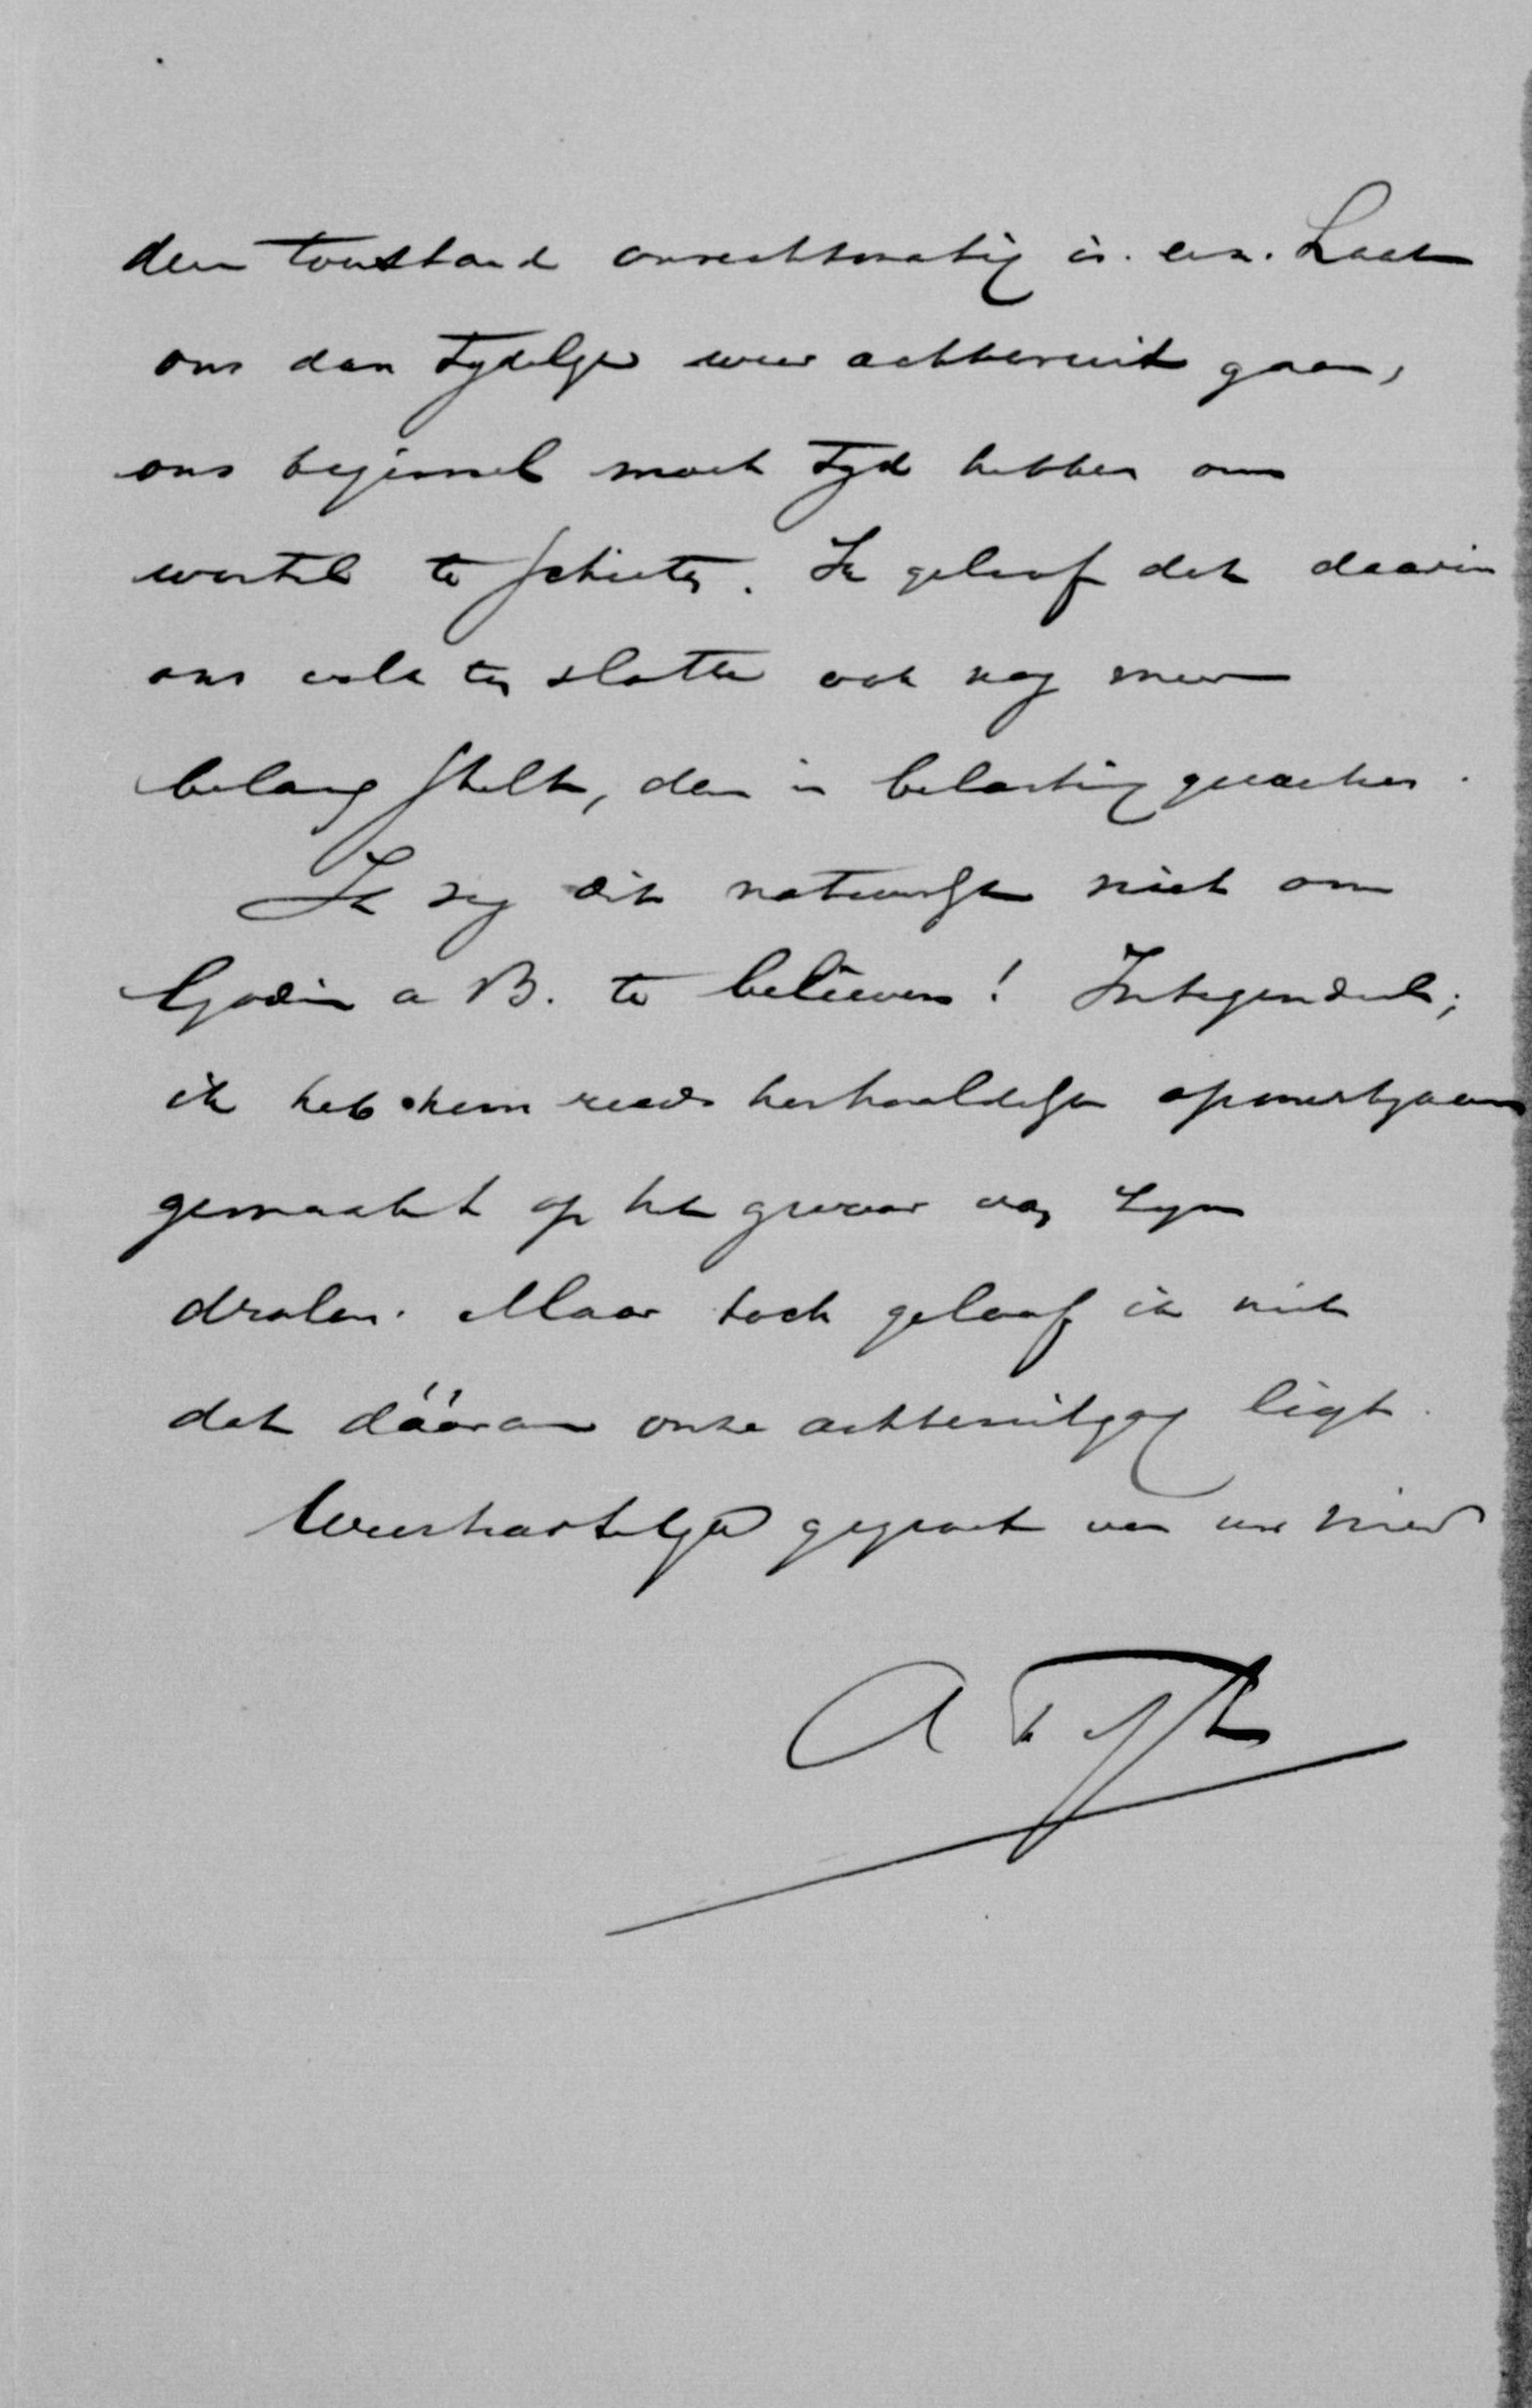 den toestand onrechtmatig is. enz. Laat
ons dan tydelyk weer achteruit gaan,
ons beginsel moet tyd hebben om
wortel te schieten. Ik geloof dat daarin
ons volk ten slotte ook nog meer
belang stelt, dan in belasting
Ik zeg dit natuurlyk niet om
Godin a B. te believen! Integendeel;
ik heb hem reeds herhaaldelyk opmerkzaam
gemaakt op het gevaar van zyn
dralen. Maar toch geloof ik niet
dat dááraan onze achteruitgang ligt.
Weerhartelyk gegroet van uw vriend